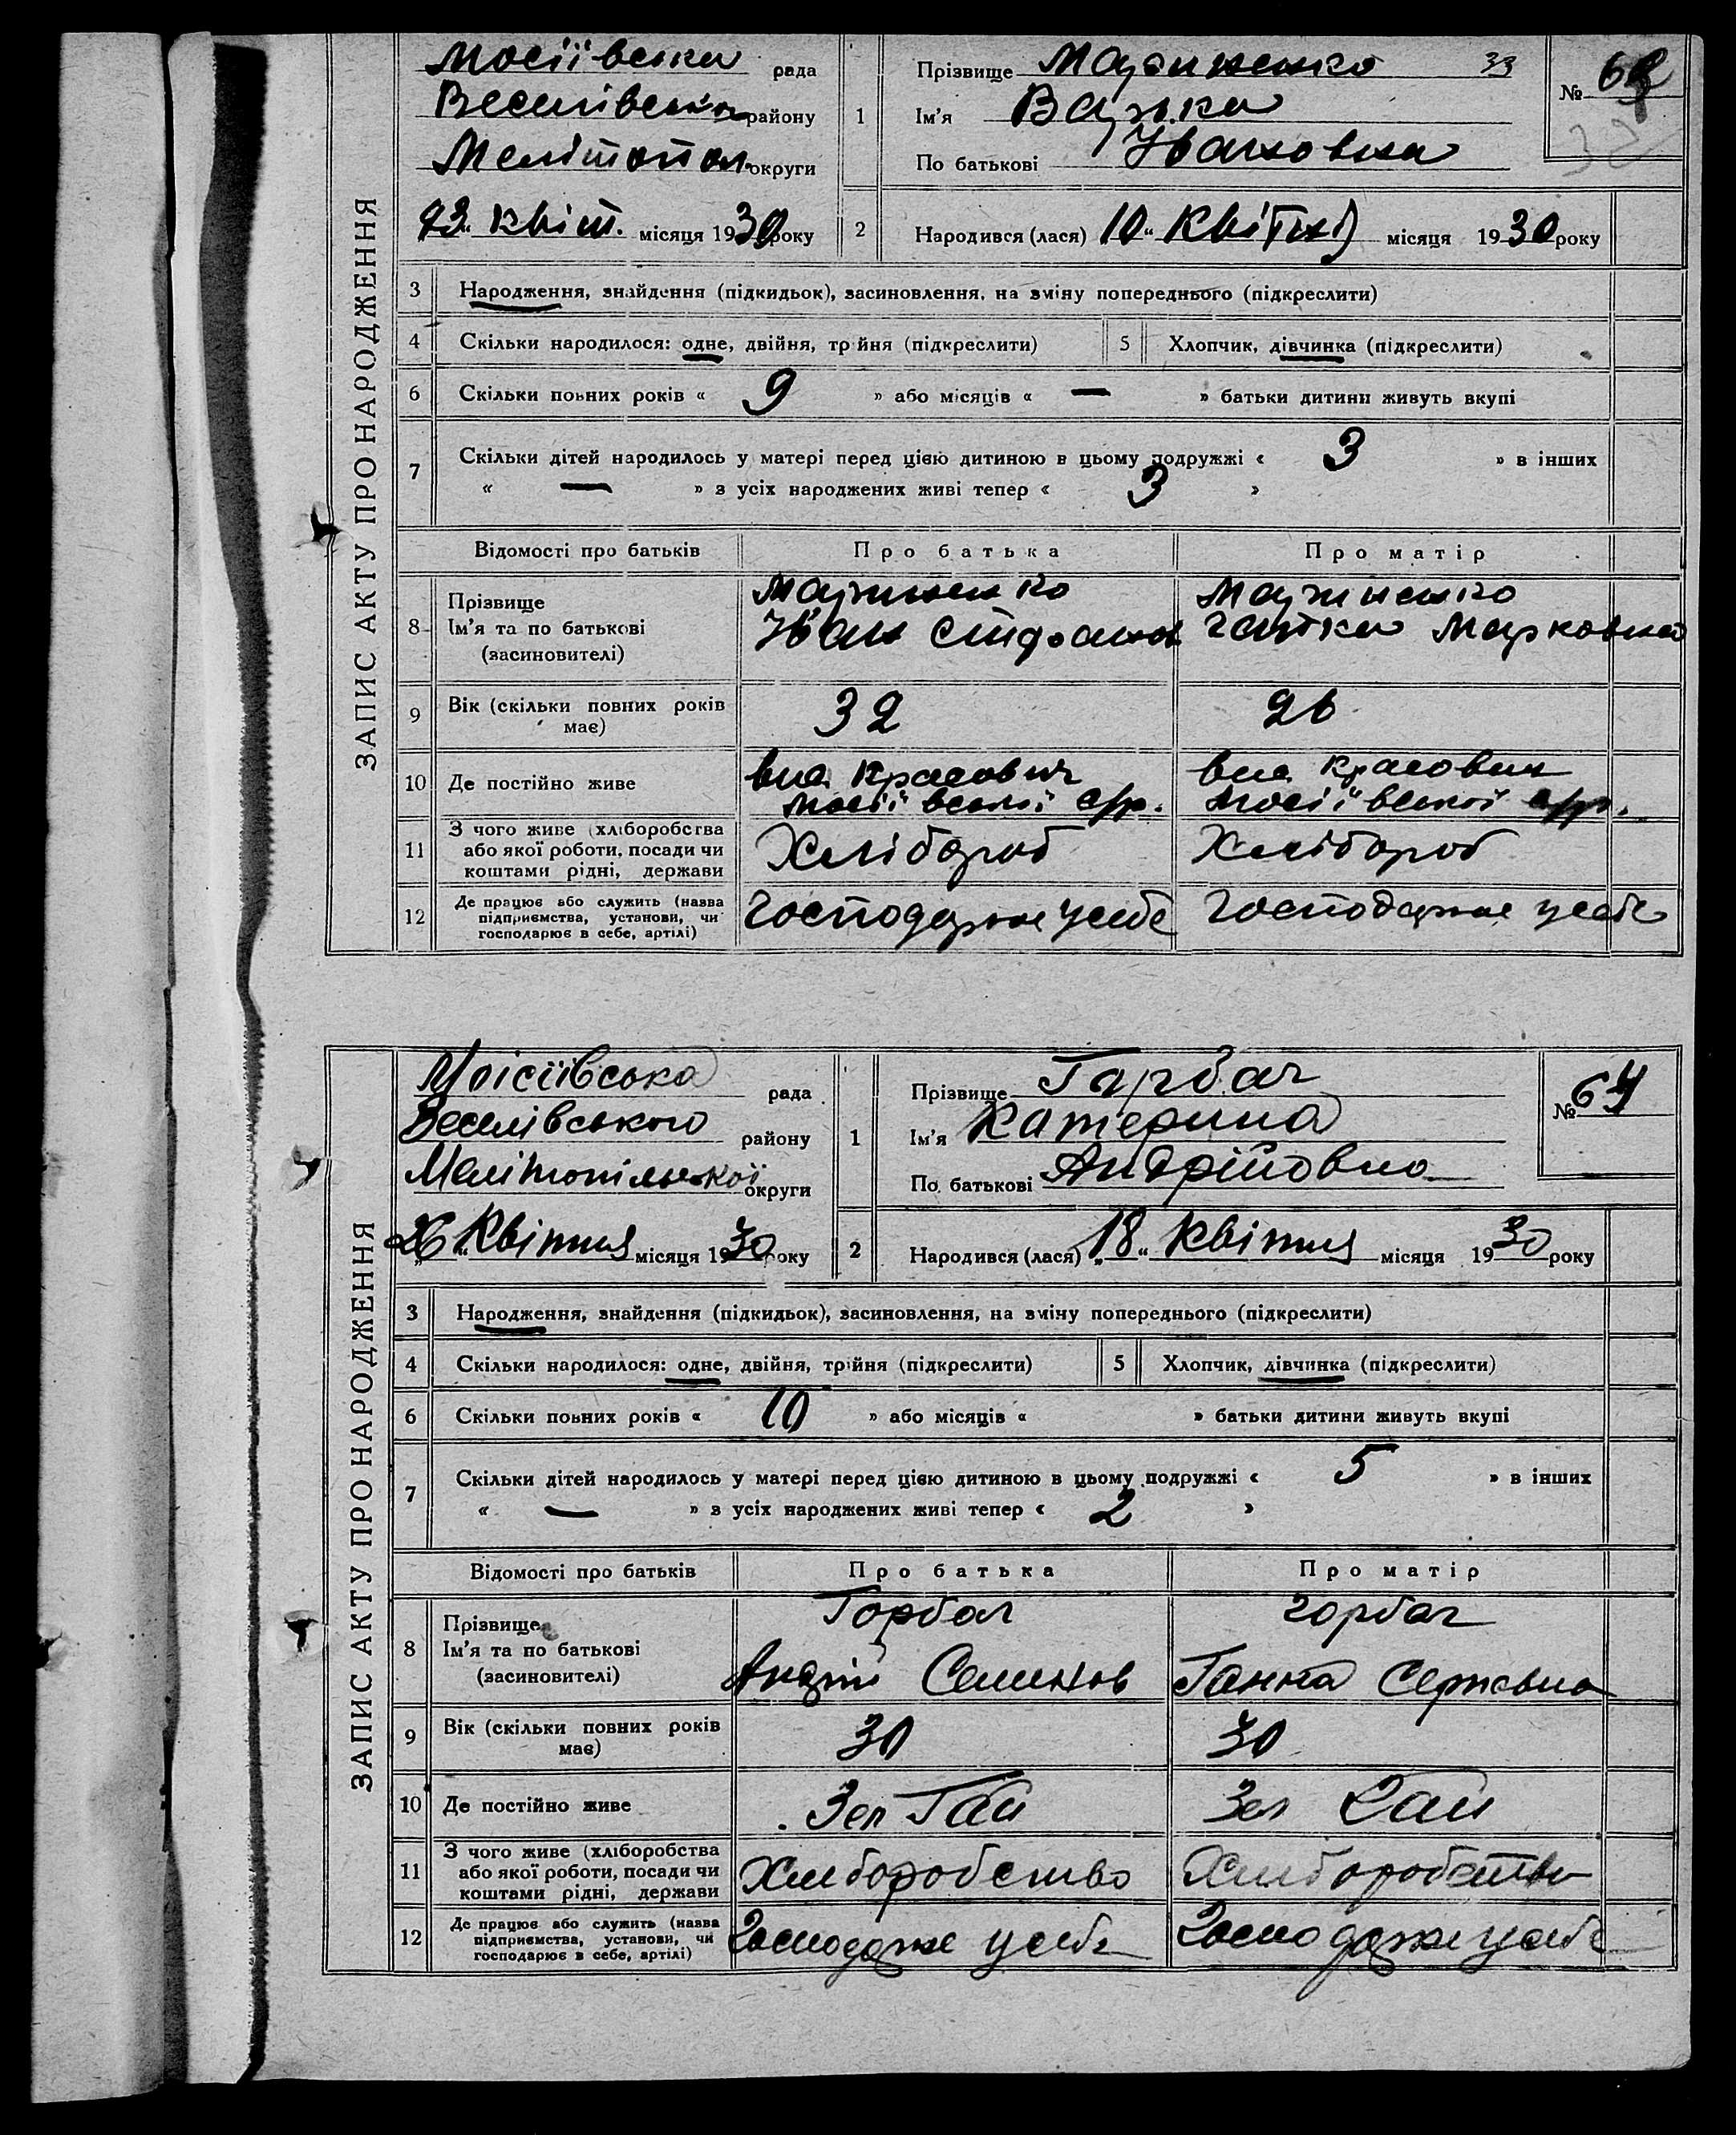 ЗАПИС АКТУ ПРО НАРОДЖЕННЯ
Мосіївська рада
Веселівськ району
Мелітопол округи
23 квіт. місяця 1930 року
1 Прізвище 33
Ім'я Варка
По батькові Івановна
№
2 Народився (лася) 10 Квітня місяця 1930 року
3 Народження, знайдення (підкидьок), засиновлення, на зміну попереднього (підкреслити)
4 Скільки народилося: одне, двійня, трійня (підкреслити) 5 Хлопчик, дівчинка (підкреслити)
6 Скільки повних років « 9 » або місяців « — » батьки дитини живуть вкупі
7 Скільки дітей народилось у матері перед цією дитиною в цьому подружжі « 3 » в інших
« — » з усіх народжених живі тепер « 3 »
Відомості про батьків Про батька Про матір
8 Прізвище
Ім'я та по батькові Іван Марковна
(засиновителі)
9 Вік (скільки повних років має) 32 26
10 Де постійно живе
Мосіївської с/р. Мосіївської с/р.
11 З чого живе (хліборобства або якої роботи, посади чи коштами рідні, держави Хлібороб Хлібороб
12 Де працює або служить (назва підприємства, установи, чи господарює в себе, артілі) Господарює у себе Господарює у себе
ЗАПИС АКТУ ПРО НАРОДЖЕННЯ
Моісіївська рада
Веселівського району
Мелітопільської округи
26 Квітня місяця 1930 року
1 Прізвище Горбач
Ім'я Катерина
По батькові Андрійовна
№ 64
2 Народився (лася) 18 Квітня місяця 1930 року
3 Народження, знайдення (підкидьок), засиновлення, на зміну попереднього (підкреслити)
4 Скільки народилося: одне, двійня, трійня (підкреслити) 5 Хлопчик, дівчинка (підкреслити)
6 Скільки повних років « 10 » або місяців « » батьки дитини живуть вкупі
7 Скільки дітей народилось у матері перед цією дитиною в цьому подружжі « 5 » в інших
« — » з усіх народжених живі тепер « 2 »
Відомості про батьків Про батька Про матір
8 Прізвище Горбач Горбач
Ім'я та по батькові Андрій Семенов Ганна
(засиновителі)
9 Вік (скільки повних років має) 30 30
10 Де постійно живе Зел Гай Зел Гай
11 З чого живе (хліборобства або якої роботи, посади чи коштами рідні, держави Хлиборобство Хлиборобство
12 Де працює або служить (назва підприємства, установи, чи господарює в себе, артілі) Господарює у себе Господарює у себе